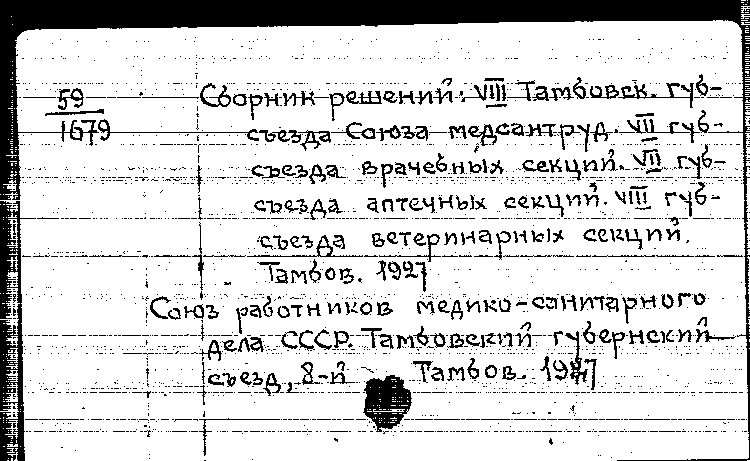 59
1679
Сборник решений: VIII Тамбовск. губ-
съезда Союза медсантруд. VII губ-
съезда врачебных секций. VII губ-
съезда аптечных секций. VIII губ-
съезда ветеринарных секций.
Тамбов. 1927
Союз работников медико-санитарного
дела СССР. Тамбовский губернский
съезд, 8-й Тамбов. 1927